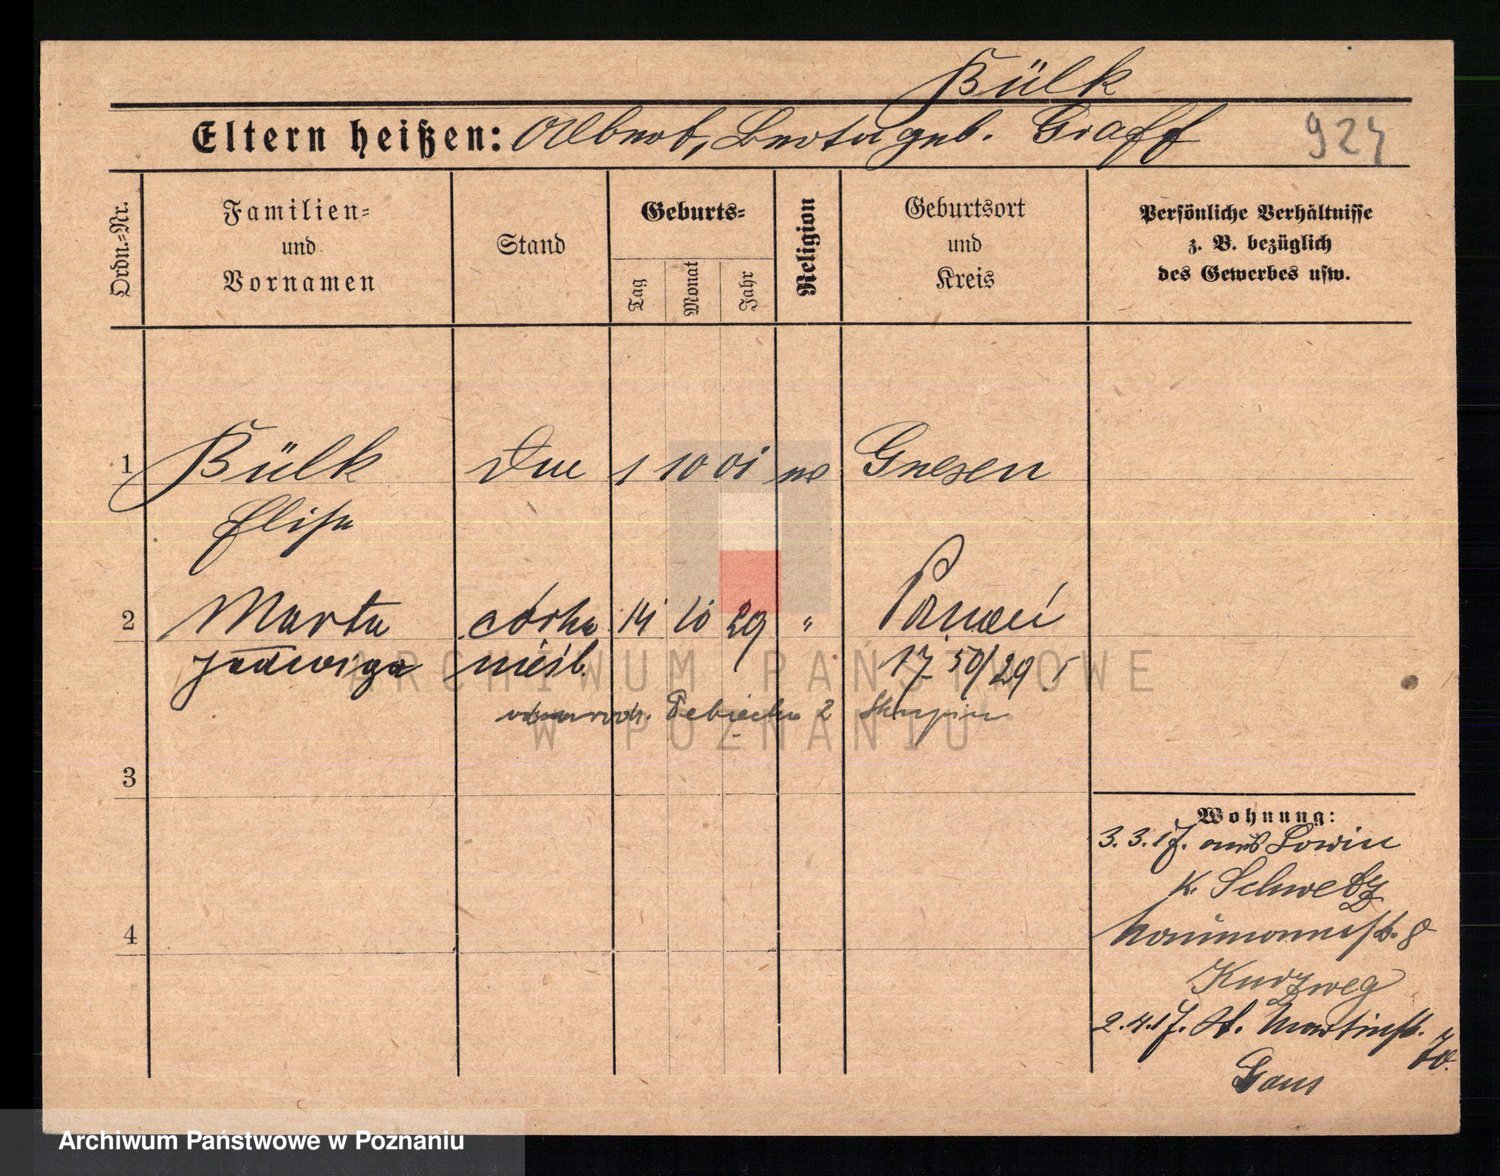 Bülk
Eltern heißen: Albert, Berta geb. Graff 924
Ordn.-Nr.
Familien-
und
Vornamen
Stand
Geburts-
Tag
Monat
Jahr
Religion
Geburtsort
und
Kreis
Persönliche Verhältnisse
z. B. bezüglich
des Gewerbes usw.
1 Bülk 1 10 01 Gnesen
Elise
2 Marta córka 14 10 29 " Poznań
Jadwiga nieśl. 17 50/29
2
ARCHIWUM PAŃSTWOWE
W POZNANIU
3
4
Wohnung:
3.3.17. aus Lowin
K. Schwetz
Naumannst. 8
Kurzweg
2.4.17. St. Martinst. 70.
Gans
Archiwum Państwowe w Poznaniu